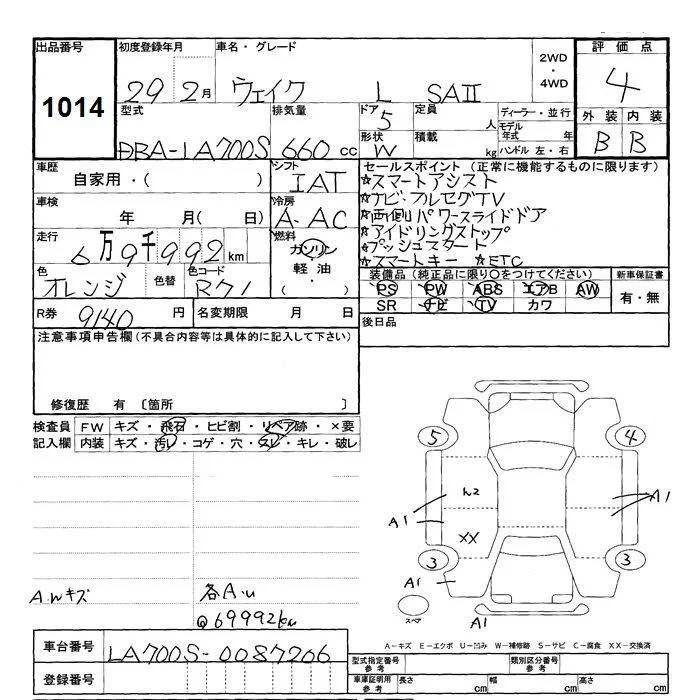 出品番号
1014
初度登録年月
29 2月
車名・グレード
ウェイク L SAⅡ
2WD
・
4WD
評価点
4
外装 内装
B B
型式
DBA-LA700S
排気量
660 cc
ドア
5
定員
人
形状
W
積載
kg
ディーラー・並行
モデル
年式 年
ハンドル 左・右
車歴
自家用・( )
シフト
IAT
車検
年 月( 日)
冷房
A-AC
走行
6万9千992km
燃料
ガソリン
軽油
・( )
色
オレンジ
色替
色コード
R71
R券 9140 円
名変期限 月 日
セールスポイント(正常に機能するものに限ります)
☆スマートアシスト
☆ナビ・フルセグTV
☆両側パワースライドドア
☆アイドリングストップ
☆プッシュスタート
☆スマートキー ☆ETC
装備品(純正品に限り○をつけてください)
PS PW ABS エアB AW
SR ナビ TV カワ
新車保証書
有・無
後日品
注意事項申告欄(不具合内容等は具体的に記入して下さい)
修復歴 有 〔箇所 〕
検査員
記入欄
FW キズ・飛石・ヒビ割・リペア跡・×要
内装 キズ・汚レ・コゲ・穴・スレ・キレ・破レ
A.Wキズ
各A.u
Q69992km
5
4
A1
W2
XX
A1
3
3
A1
A1
スペア
A-キズ E-エクボ U-凹み W-補修跡 S-サビ C-腐食 XX-交換済
車台番号
LA700S-0087206
登録番号
型式指定番号
参考
類別区分番号
参考
車庫証明用
参考
長さ cm
幅 cm
高さ cm